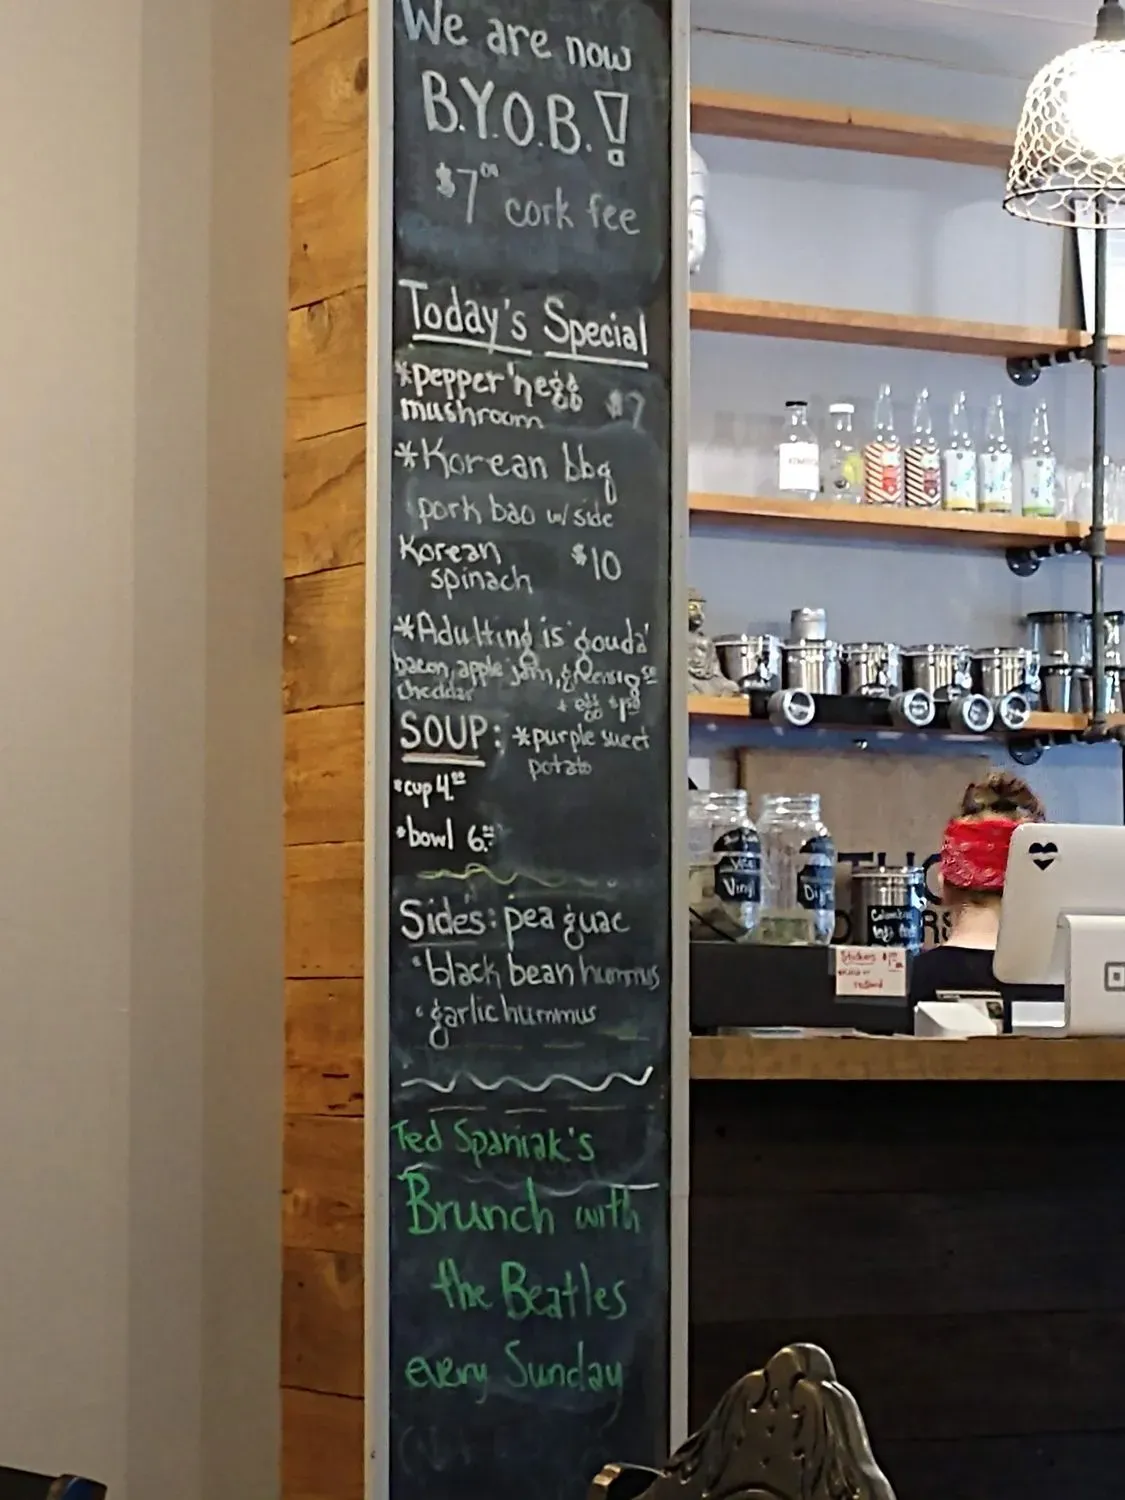 We are now
B.Y.O.B.!
$7.00 cork fee
Today's Special
*pepper 'n egg
mushroom $7
*Korean bbq
pork bao w/ side
Korean $10
spinach
*Adulting is 'gouda'
bacon, apple jam, greens
cheddar + egg $1.50
SOUP: *purple sweet
potato
*cup 4.00
*bowl 6.
Sides: pea guac
*black bean hummus
*garlic hummus
Ted Spaniak's
Brunch with
the Beatles
every Sunday
Stickers